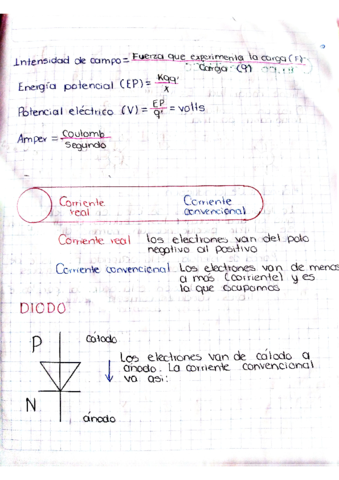 Intensidad de campo = Fuerza que experimenta la carga (F)
Carga (q)
Energía potencial (EP) = Kqq'
x
Potencial eléctrico (V) = EP = volts
q'
Amper = Coulomb
Segundo
Corriente real
Corriente convencional
Corriente real los electrones van del polo
negativo al positivo
Corriente convencional Los electrones van de menos
a más (corriente) y es
la que ocupamos
DIODO:
P
cátodo
Los electrones van de cátodo a
ánodo. La corriente convencional
va así:
N
ánodo